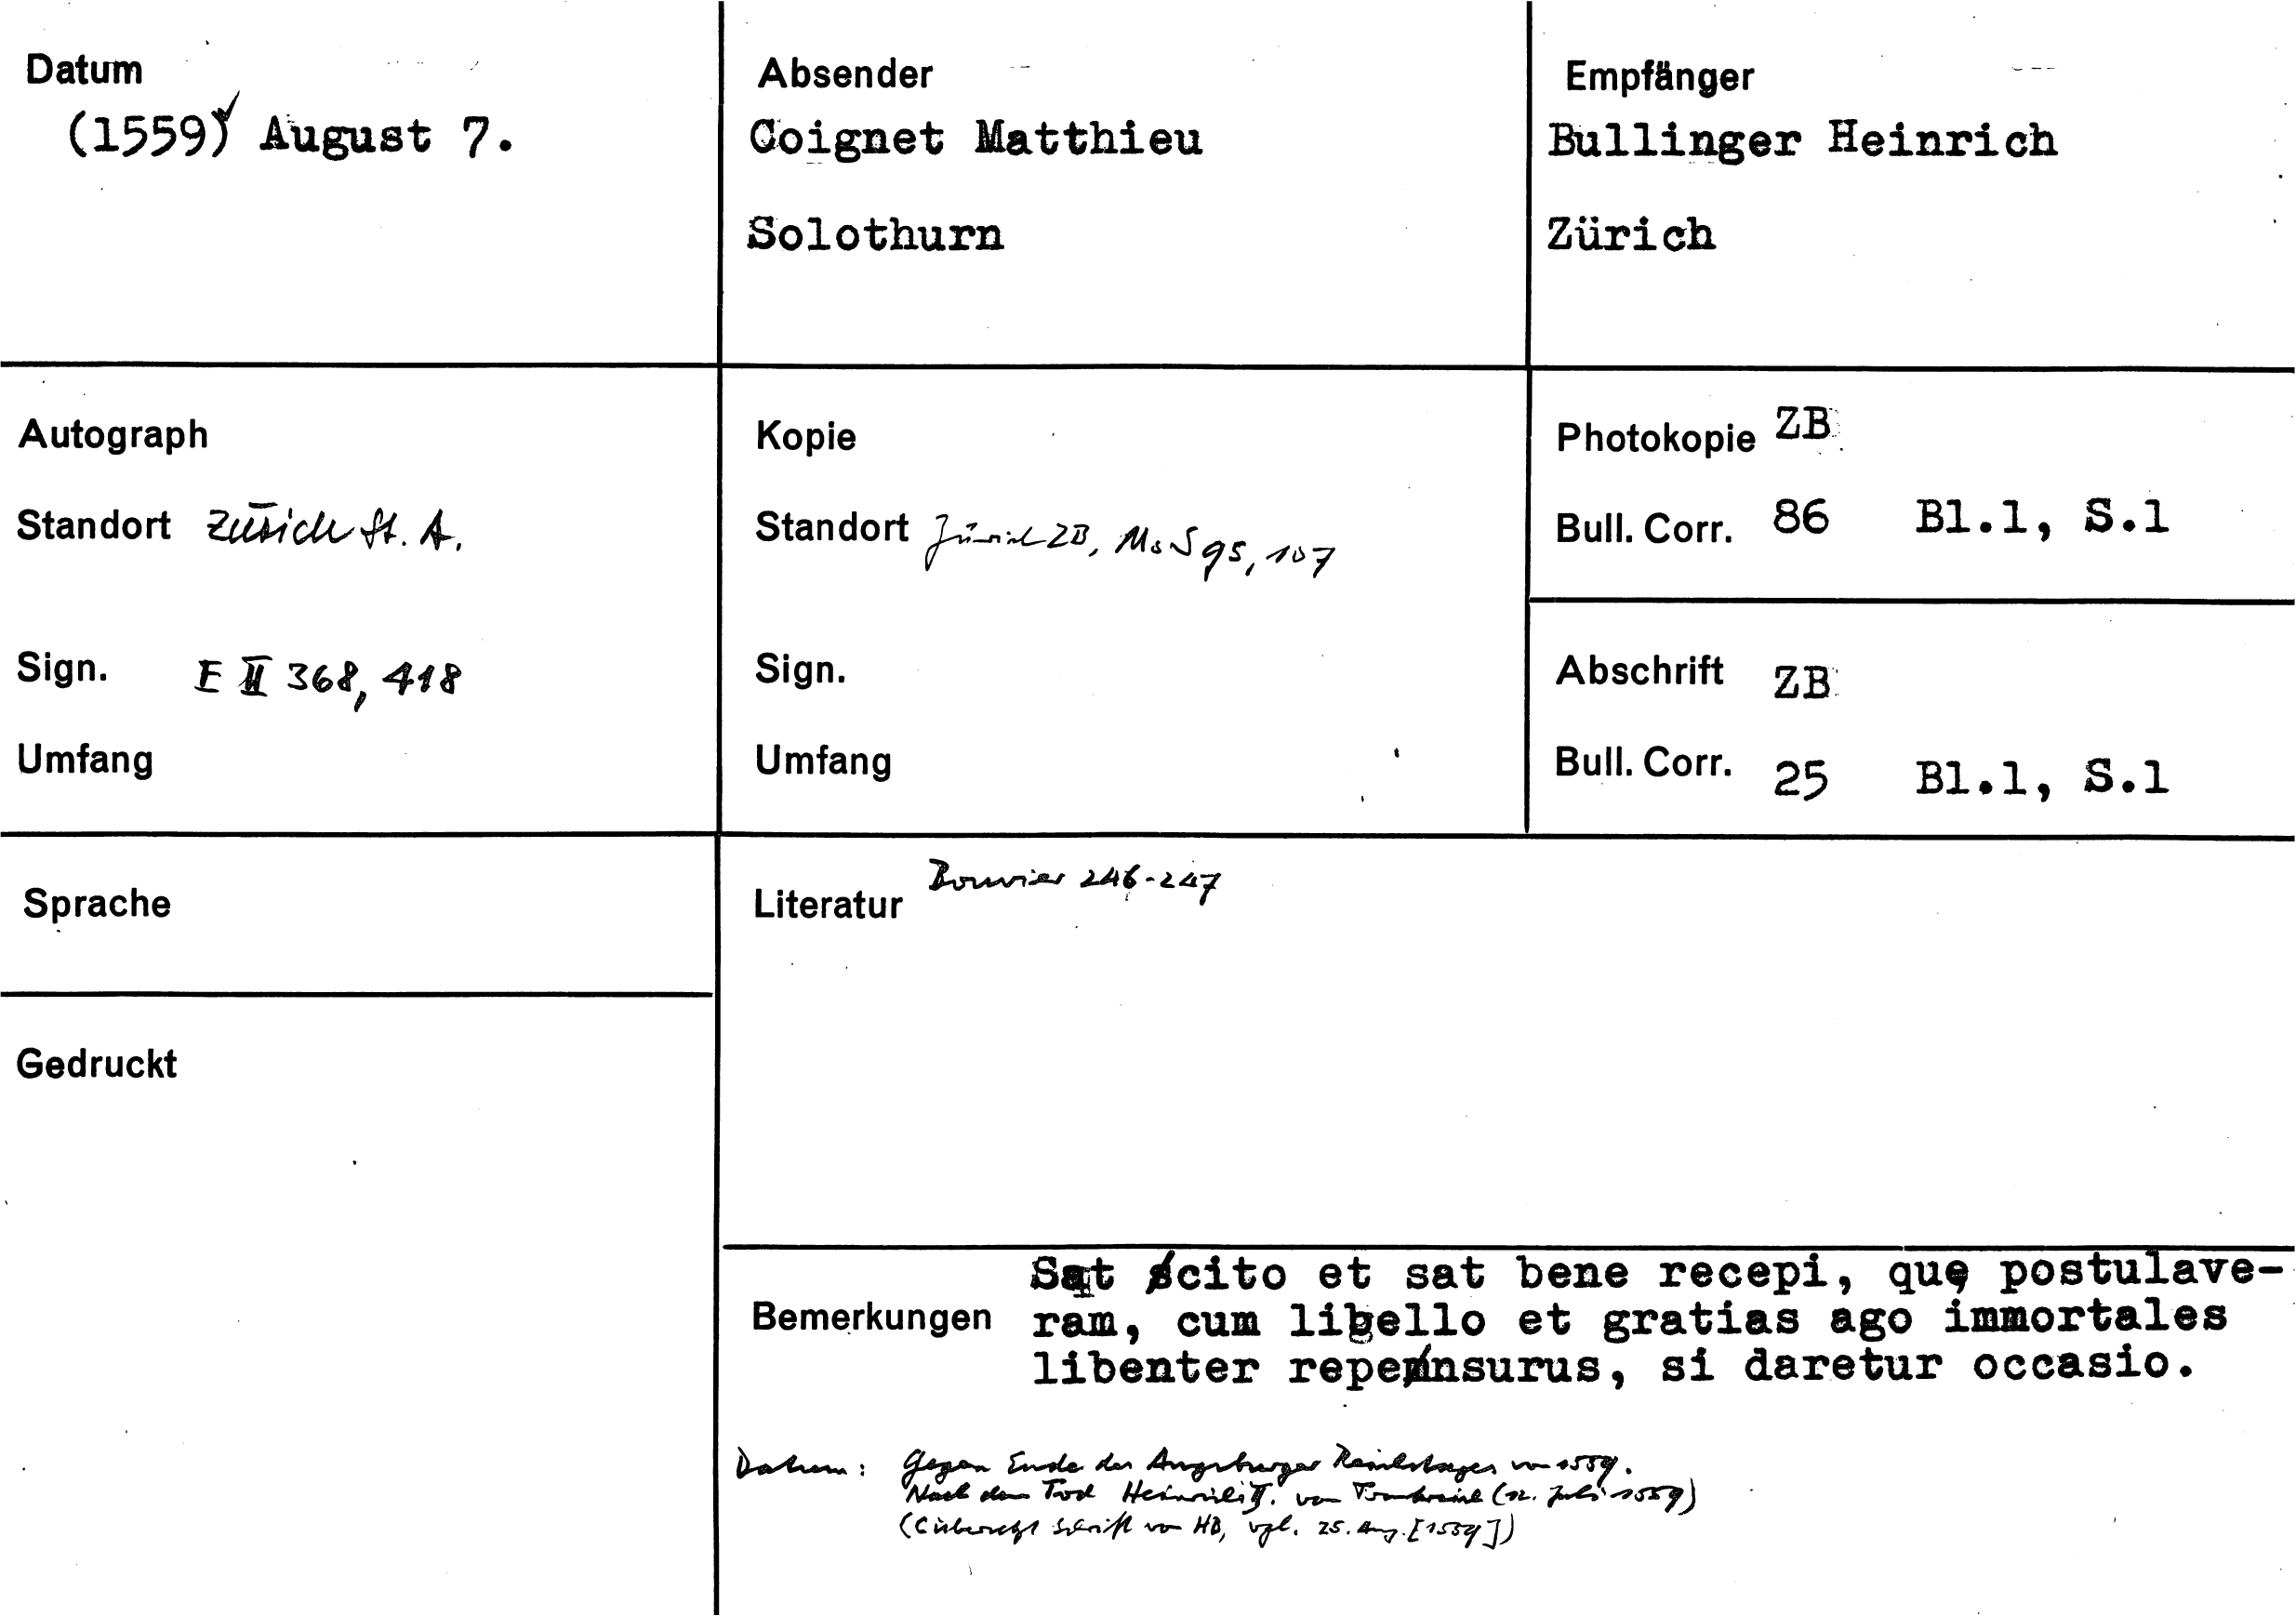 Datum
(1559) August 7.
Absender
Coignet Matthieu
Solothurn
Empfänger
Bullinger Heinrich
Zürich
Autograph
Standort Zürich St. A.
Sign. E II 368, 418
Umfang
Kopie
Standort Zürich ZB, Ms S 95, 107
Sign.
Umfang
Photokopie ZB
Bull. Corr. 86 Bl.1, S.1
Abschrift ZB
Bull. Corr. 25 Bl.1, S.1
Sprache
Literatur Bouvier 246-247
Gedruckt
Bemerkungen
Sat cito et sat bene recepi, quę postulave-
ram, cum libello et gratias ago immortales
libenter repensurus, si daretur occasio.
Datum: Gegen Ende des Augsburger Reichstages von 1559.
Nach dem Tod Heinrichs II. von Frankreich (12. Juli 1559)
(C übersetzt Schrift von HB, vgl. 25. Aug. [1559])